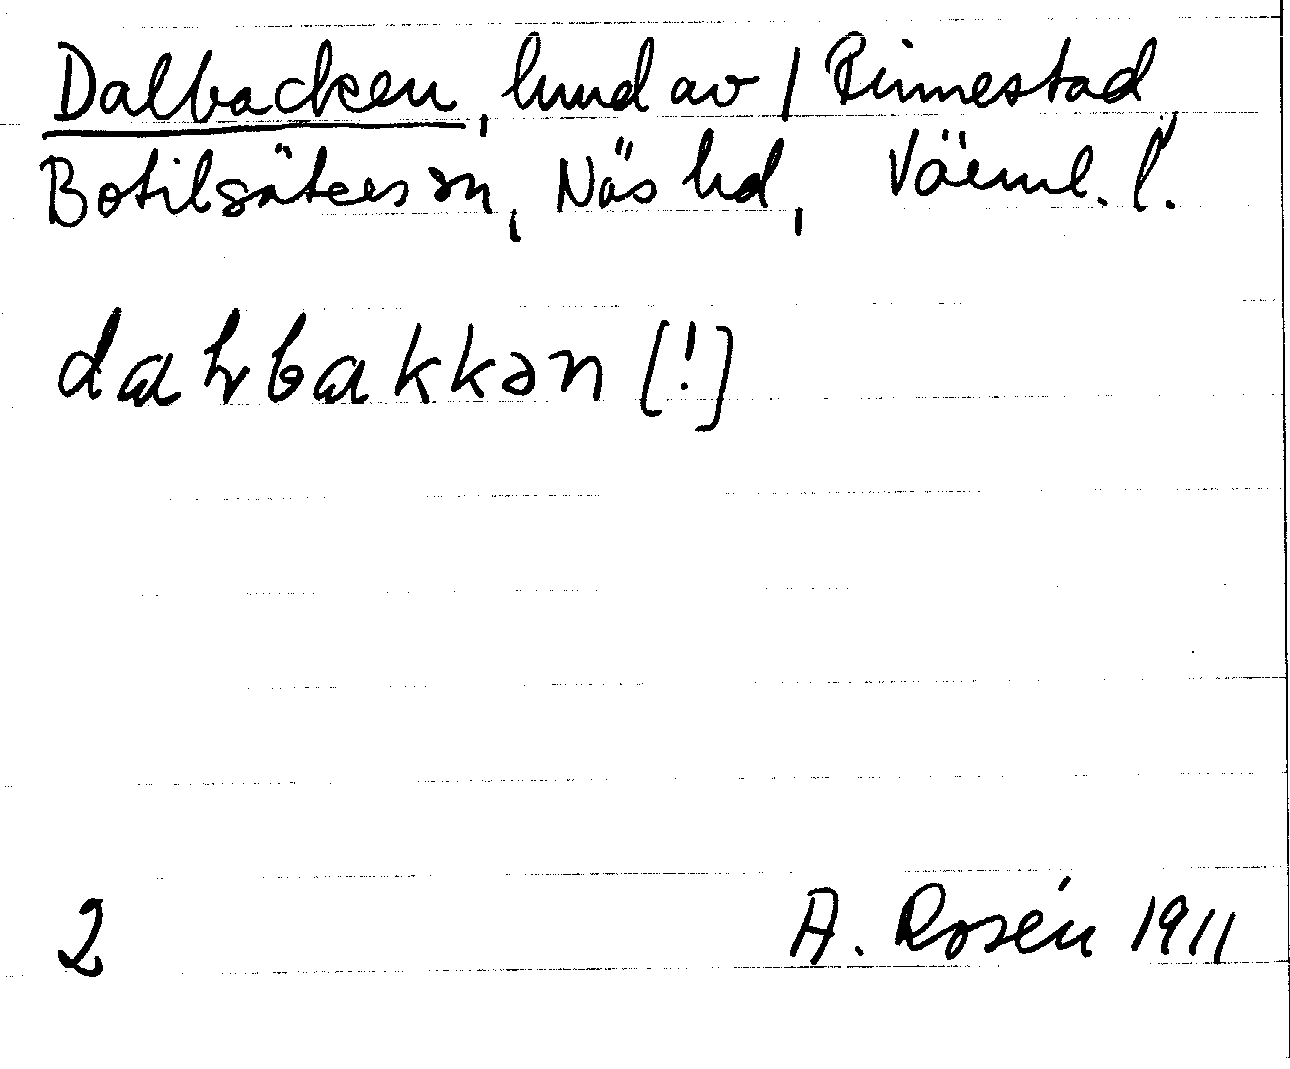 Dalbacken, hmd av / Rinnestad
Botilsäters sn, Näs hd, Värml. l.
daɽbakkən [!]
2 A. Rosén 1911